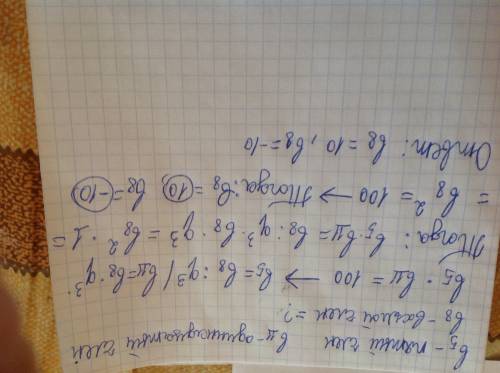 b5 - пятый член b11 - одиннадцатый член
b8 - восьмой член = ?
b5 · b11 = 100 → b5 = b8 : q³ / b11 = b8 · q³.
Тогда: b5 · b11 = b8 : q³ · b8 · q³ = b8² · 1 =
= b8² = 100 → Тогда: b8 = 10, b8 = -10
Ответ: b8 = 10, b8 = -10